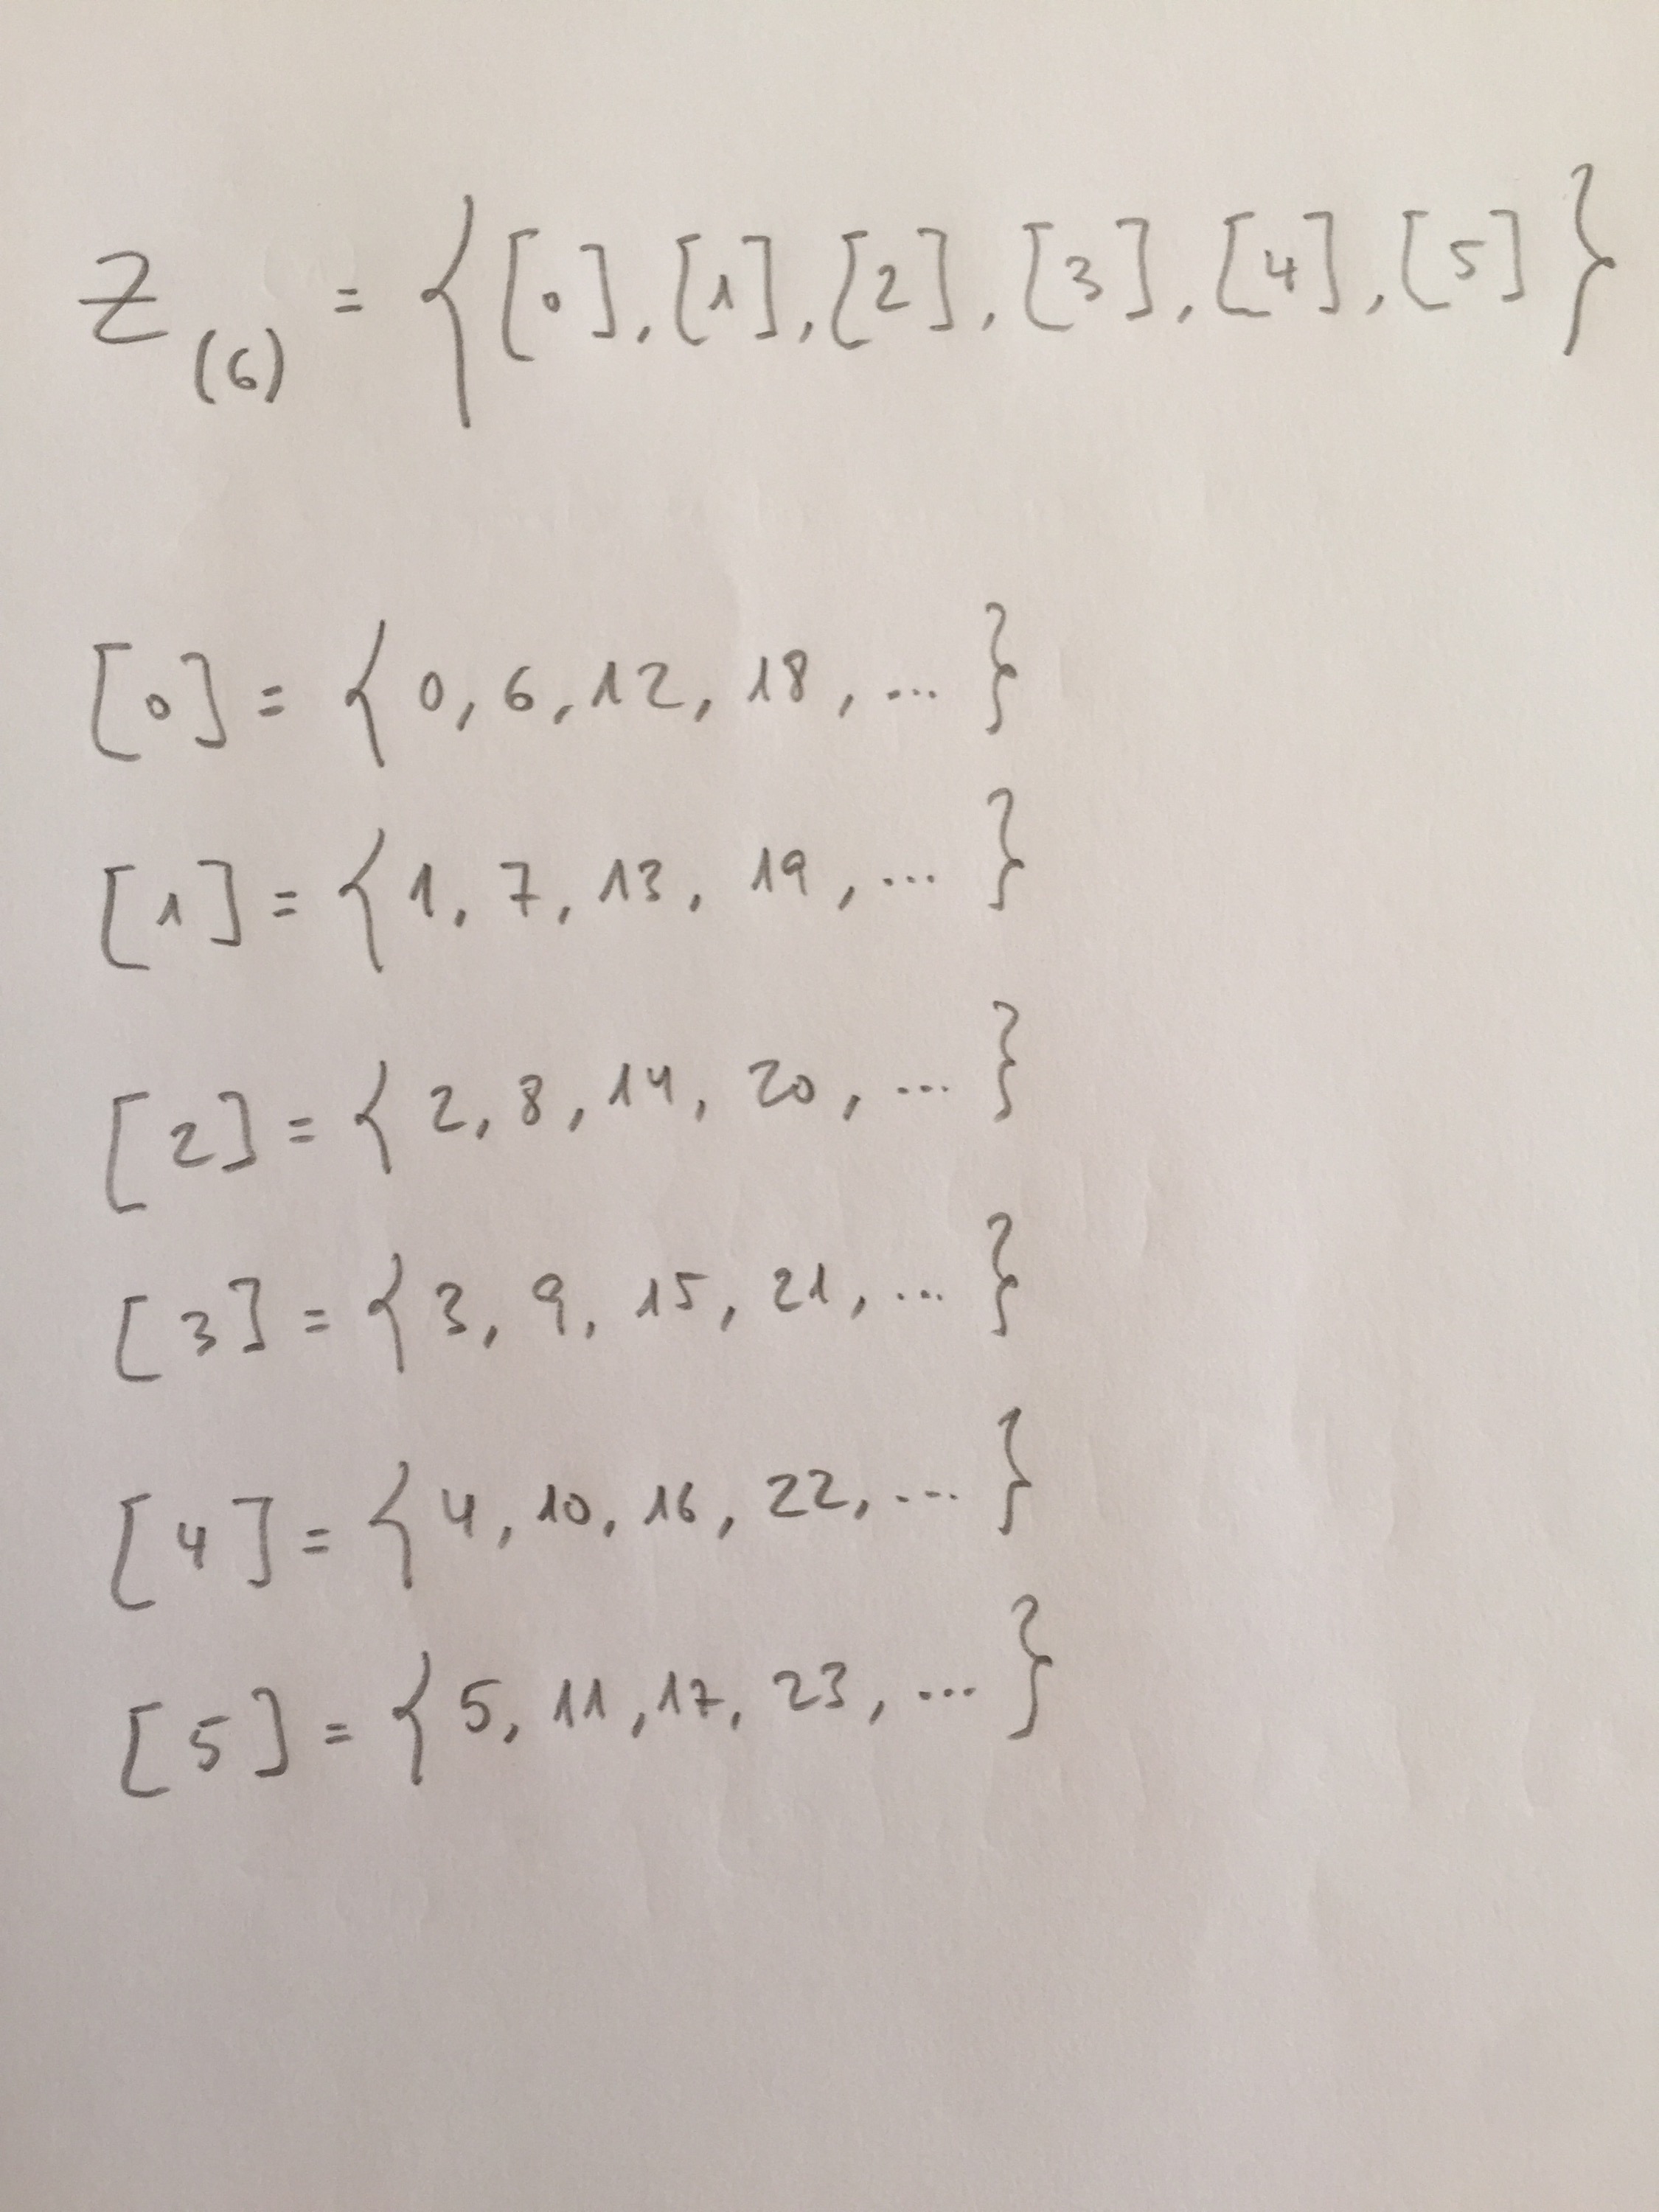 Z(6) = {[0], [1], [2], [3], [4], [5]}
[0] = {0, 6, 12, 18, ...}
[1] = {1, 7, 13, 19, ...}
[2] = {2, 8, 14, 20, ...}
[3] = {3, 9, 15, 21, ...}
[4] = {4, 10, 16, 22, ...}
[5] = {5, 11, 17, 23, ...}